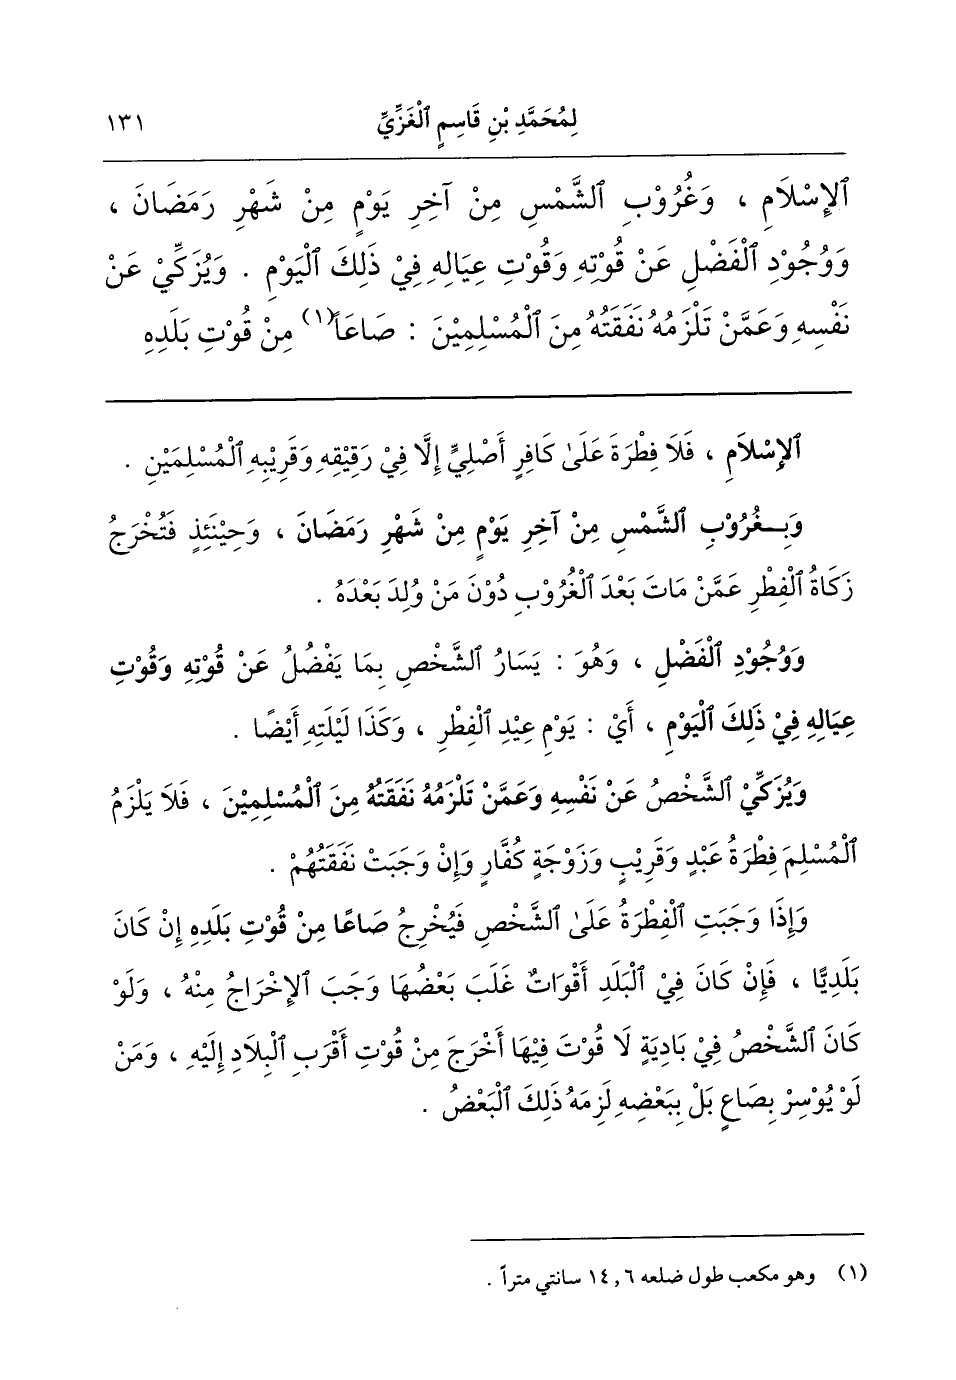 لِمُحَمَّدِ بْنِ قَاسِمٍ ٱلْغَزِّيِّ ١٣١
ٱلإِسْلَامِ ، وَغُرُوْبِ ٱلشَّمْسِ مِنْ آخِرِ يَوْمٍ مِنْ شَهْرِ رَمَضَانَ ،
وَوُجُوْدِ ٱلْفَضْلِ عَنْ قُوْتِهِ وَقُوْتِ عِيَالِهِ فِيْ ذَلِكَ ٱلْيَوْمِ . وَيُزَكِّيْ عَنْ
نَفْسِهِ وَعَمَّنْ تَلْزَمُهُ نَفَقَتُهُ مِنَ ٱلْمُسْلِمِيْنَ : صَاعَاً(١) مِنْ قُوْتِ بَلَدِهِ
ٱلإِسْلَامِ ، فَلَا فِطْرَةَ عَلَىٰ كَافِرٍ أَصْلِيٍّ إِلَّا فِيْ رَقِيْقِهِ وَقَرِيْبِهِ ٱلْمُسْلِمَيْنِ .
وَبِـغُرُوْبِ ٱلشَّمْسِ مِنْ آخِرِ يَوْمٍ مِنْ شَهْرِ رَمَضَانَ ، وَحِيْنَئِذٍ فَتُخْرَجُ
زَكَاةُ ٱلْفِطْرِ عَمَّنْ مَاتَ بَعْدَ ٱلْغُرُوْبِ دُوْنَ مَنْ وُلِدَ بَعْدَهُ .
وَوُجُوْدِ ٱلْفَضْلِ ، وَهُوَ : يَسَارُ ٱلشَّخْصِ بِمَا يَفْضُلُ عَنْ قُوْتِهِ وَقُوْتِ
عِيَالِهِ فِيْ ذَلِكَ ٱلْيَوْمِ ، أَيْ : يَوْمِ عِيْدِ ٱلْفِطْرِ ، وَكَذَا لَيْلَتِهِ أَيْضًا .
وَيُزَكِّيْ ٱلشَّخْصُ عَنْ نَفْسِهِ وَعَمَّنْ تَلْزَمُهُ نَفَقَتُهُ مِنَ ٱلْمُسْلِمِيْنَ ، فَلَا يَلْزَمُ
ٱلْمُسْلِمَ فِطْرَةُ عَبْدٍ وَقَرِيْبٍ وَزَوْجَةٍ كُفَّارٍ وَإِنْ وَجَبَتْ نَفَقَتُهُمْ .
وَإِذَا وَجَبَتِ ٱلْفِطْرَةُ عَلَىٰ ٱلشَّخْصِ فَيُخْرِجُ صَاعًا مِنْ قُوْتِ بَلَدِهِ إِنْ كَانَ
بَلَدِيًّا ، فَإِنْ كَانَ فِيْ ٱلْبَلَدِ أَقْوَاتٌ غَلَبَ بَعْضُهَا وَجَبَ ٱلإِخْرَاجُ مِنْهُ ، وَلَوْ
كَانَ ٱلشَّخْصُ فِيْ بَادِيَةٍ لَا قُوْتَ فِيْهَا أَخْرَجَ مِنْ قُوْتِ أَقْرَبِ ٱلْبِلَادِ إِلَيْهِ ، وَمَنْ
لَوْ يُوْسِرْ بِصَاعٍ بَلْ بِبَعْضِهِ لَزِمَهُ ذَلِكَ ٱلْبَعْضُ .
(١) وهو مكعب طول ضلعه ١٤,٦ سانتي متراً .